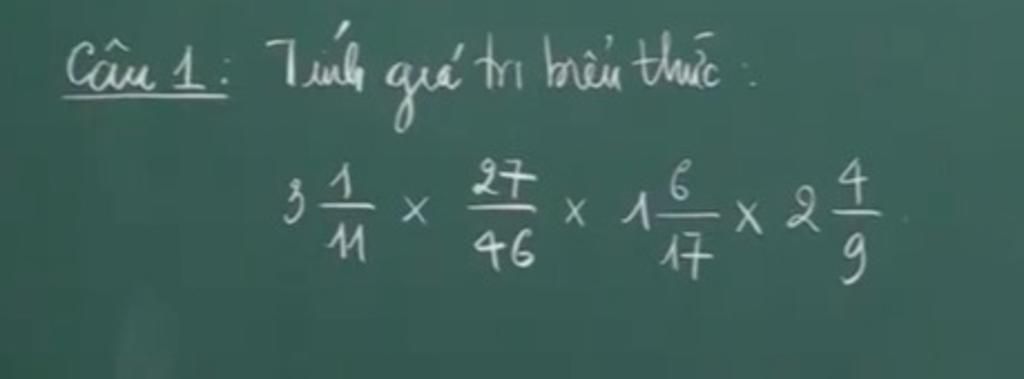 Câu 1: Tính giá trị biểu thức:
3 1/11 × 27/46 × 1 6/17 × 2 4/9